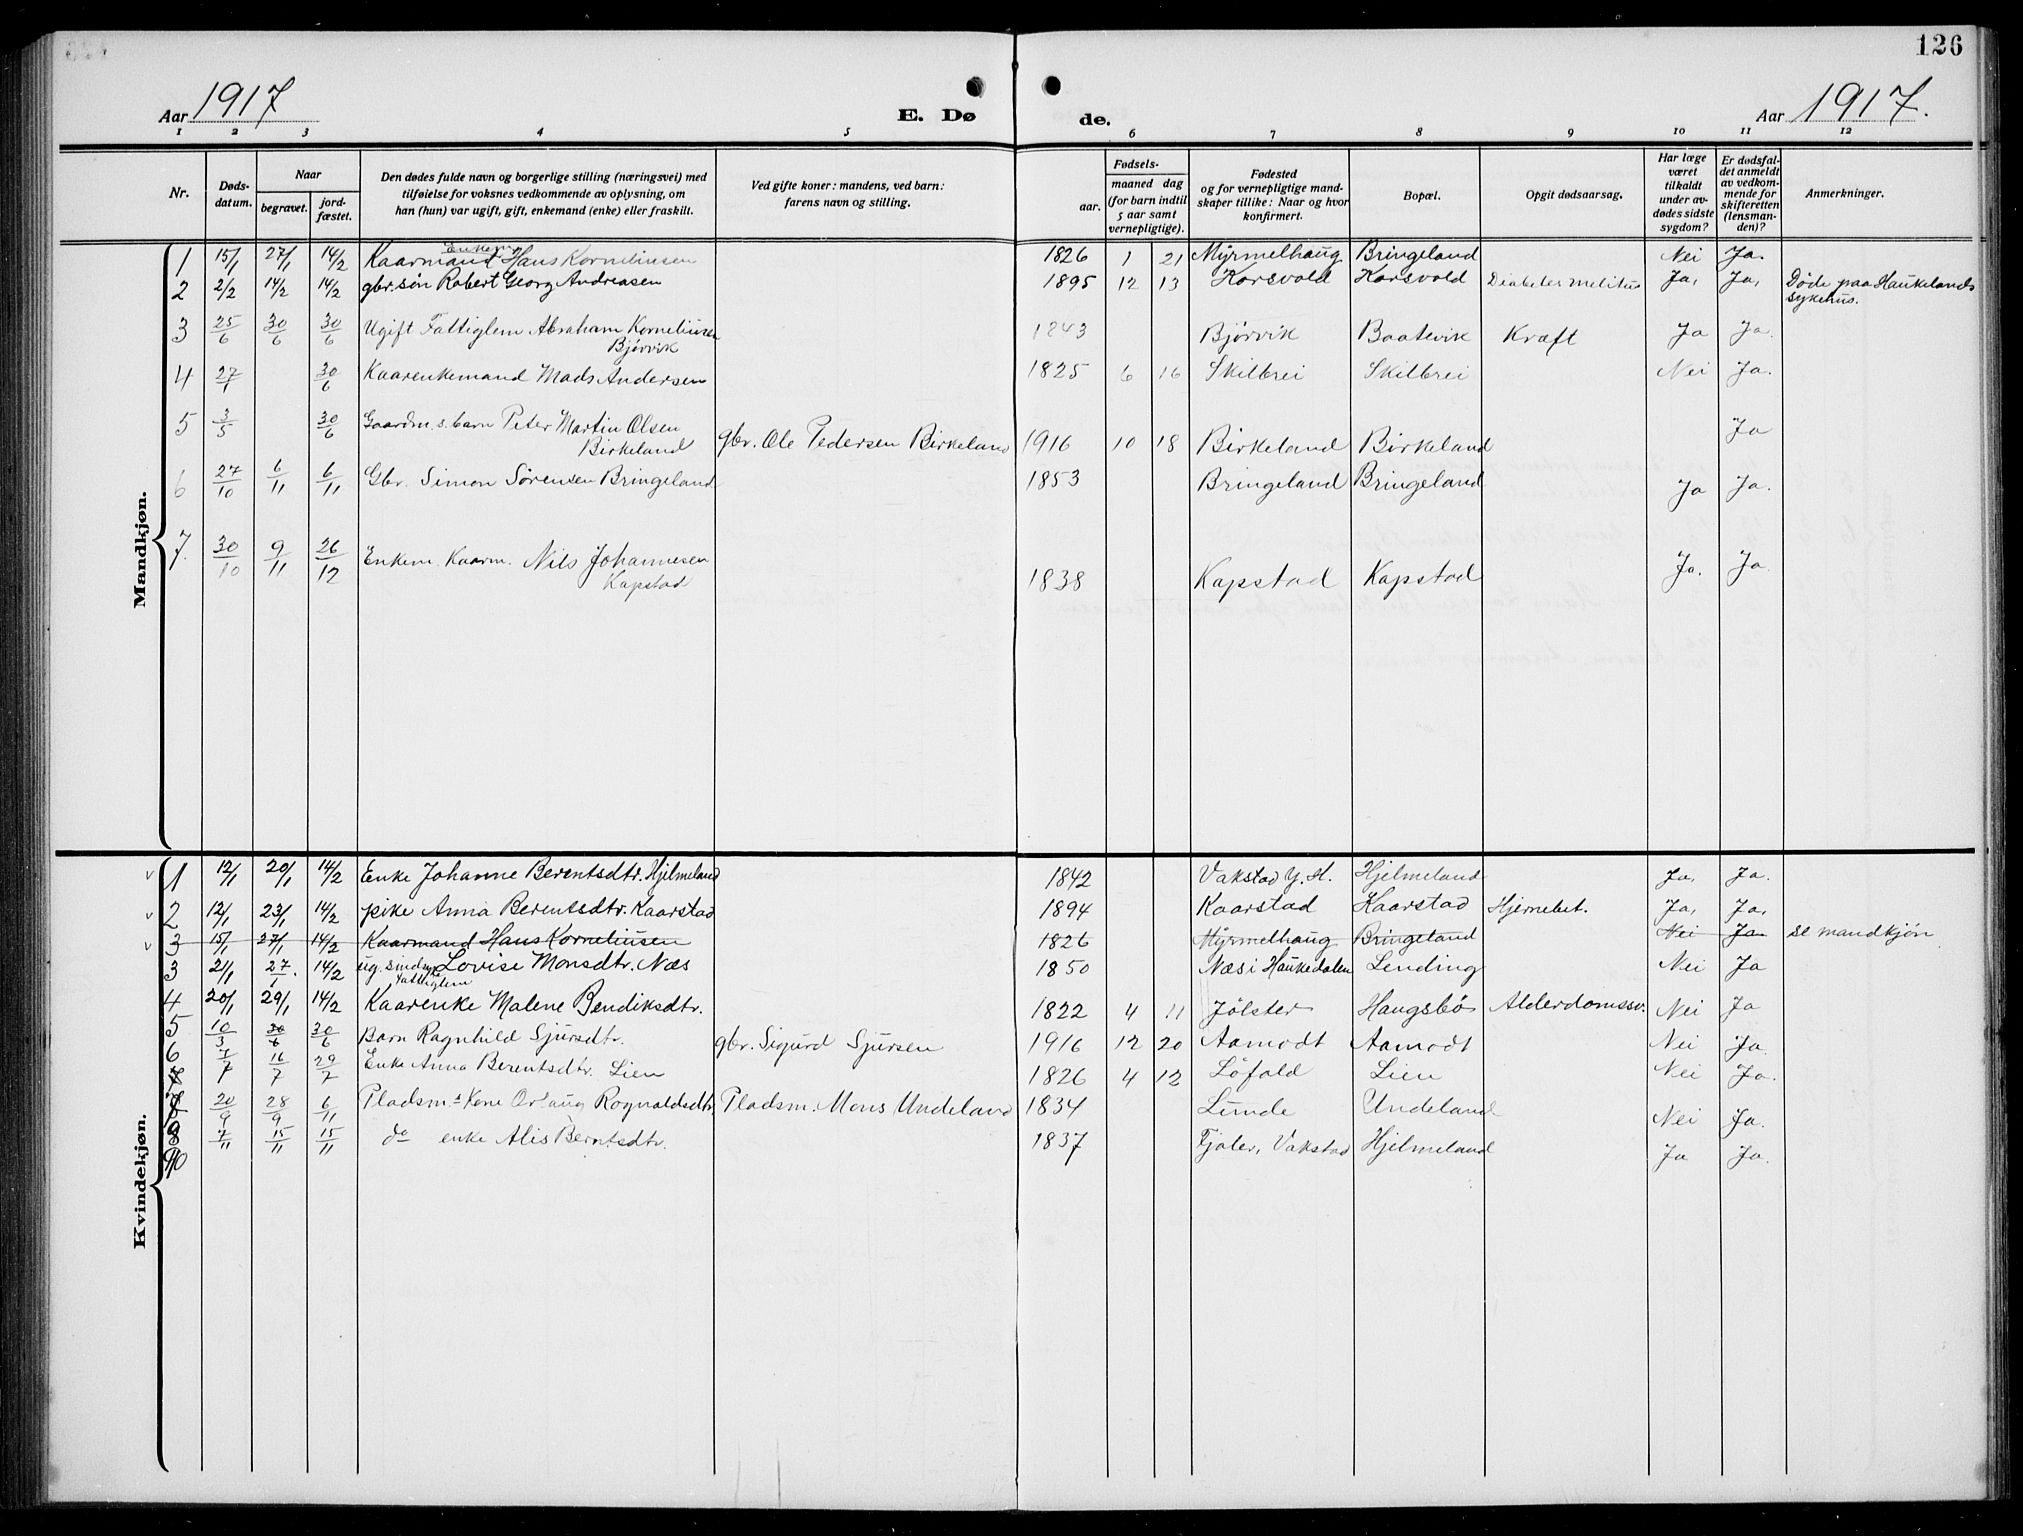 126
Aar 1917 E. Dø de. Aar 1917.
1 2 3 4 5 6 7 8 9 10 11 12
Nr. Døds-datum. Naar begravet. jord-fæstet. Den dødes fulde navn og borgerlige stilling (næringsvei) med tilføielse for voksnes vedkommende av oplysning, om han (hun) var ugift, gift, enkemand (enke) eller fraskilt. Ved gifte koner: mandens, ved barn: farens navn og stilling. Fødsels- aar. maaned dag (for barn indtil 5 aar samt vernepligtige). Fødested og for vernepligtige mand-skaper tillike: Naar og hvor konfirmert. Bopæl. Opgit dødsaarsag. Har læge været tilkaldt under av-dødes sidste sygdom? Er dødsfal-det anmeldt av vedkom-mende for skifteretten (lensman-den)? Anmerkninger.
Mandkjøn.
1 15/1 27/1 14/2 Kaarmand Enkem Hans Korneliusen 1826 1 21 Myrmelhaug Bringeland Nei Ja.
2 2/2 14/2 14/2 gbr. søn Robert Georg Andreasen 1895 12 13 Korsvold Korsvold Diabetes melitus Ja, Ja, Døde paa Haukelands
sykehus.
3 25/6 30/6 30/6 Ugift Fattiglem Abraham Korneliusen 1843 Bjørvik Baatevik Kræft Ja Ja.
Bjørvik
4 27/1 30/6 Kaarenkemand Mads Andersen 1825 6 16 Skilbrei Skilbrei Nei Ja.
5 3/5 30/6 Gaardm.s. barn Peter Martin Olsen gbr. Ole Pedersen Birkeland 1916 10 18 Birkeland Birkeland Ja
Birkeland
6 27/10 6/11 6/11 Gbr. Simon Sørensen Bringeland 1853 Bringeland Bringeland Ja Ja.
7. 30/10 9/11 26/12 Enkem. Kaarm. Nils Johannesen 1838 Kapstad Kapstad Ja. Ja
Kapstad
Kvindekjøn.
v 1 12/1 20/1 14/2 Enke Johanne Berentsdtr. Hjelmeland 1842 Vakstad Y. H. Hjelmeland Ja, Ja.
v 2 12/1 23/1 14/2 pike Anna Berentsdtr. Kaarstad 1894 Kaarstad Kaarstad Hjernebet. Ja, Ja,
v 3 15/1 27/1 14/2 Kaarmand Hans Korneliusen 1826 Myrmelhaug Bringeland Nei Ja se mandkjøn
3 21/1 27/1. 14/2 ug. sindsyg Lovise Monsdtr. Næs 1850 Næs i Haukedalen Lending Nei Ja
fattiglem
4 20/1 29/1 14/2 Kaarenke Malene Bendiksdtr. 1822 4 11 Jølster Haugsbø Alderdomssv. Nei Ja
5 10/3 30/6 30/6 Barn Ragnhild Sjursdtr. gbr. Sigurd Sjursen 1916 12 20 Aamodt Aamodt Nei Ja.
6 7/7 16/7 29/7 Enke Anna Berentsdtr. Lien 1826 4 12 Løfald Lien Nei Ja.
20/9 28/9 6/11 Pladsm.s Kone Orlaug Rognaldsdtr. Pladsm. Mons Undeland 1834 Lunde Undeland Nei Ja.
7/11 15/11 15/11 do enke Alis Berntsdtr. 1837 Fjaler, Vakstad Hjelmeland Ja Ja.